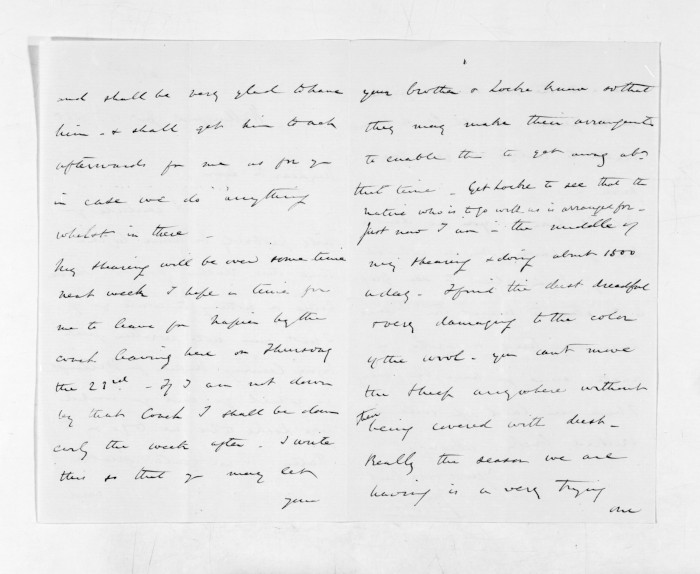 and shall be very glad to have
him - & shall get him to act
afterwards for me as for you
in case we do anything
whilst in there -
My shearing will be over some time
next week I hope in time for
me to leave for Napier by the
coach leaving here on Thursday
the 23rd - If I am not down
by that Coach I shall be down
early the week after. I write
this so that you may let
your
your brother & Locke know so that
they may make their arrangements
to enable them to get away abt
that time - Get Locke to see that the
native who is to go with us is arranged for -
Just now I am in the middle of
my shearing & doing about 1500
a day - I find the dust dreadful
& very damaging to the color
of the wool - you cant move
the sheep anywhere without
their being covered with dust -
Really the season we are
having is a very trying
one